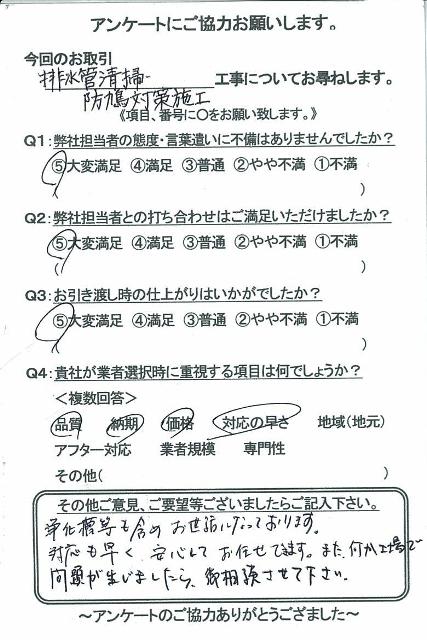 アンケートにご協力お願いします。
今回のお取引
排水管清掃
防鳩対策施工
工事についてお尋ねします。
《項目、番号に〇をお願い致します。》
Q1:弊社担当者の態度・言葉遣いに不備はありませんでしたか?
⑤大変満足 ④満足 ③普通 ②やや不満 ①不満
( )
Q2:弊社担当者との打ち合わせはご満足いただけましたか?
⑤大変満足 ④満足 ③普通 ②やや不満 ①不満
( )
Q3:お引き渡し時の仕上がりはいかがでしたか?
⑤大変満足 ④満足 ③普通 ②やや不満 ①不満
Q4:貴社が業者選択時に重視する項目は何でしょうか?
<複数回答>
品質 納期 価格 対応の早さ 地域(地元)
アフター対応 業者規模 専門性
その他( )
その他ご意見、ご要望等ございましたらご記入下さい。
浄化槽等も含め お世話になっております。
対応も早く、安心して お任せできます。また、何か工場で
問題が生じましたら、御相談させて下さい。
~アンケートのご協力ありがとうござました~